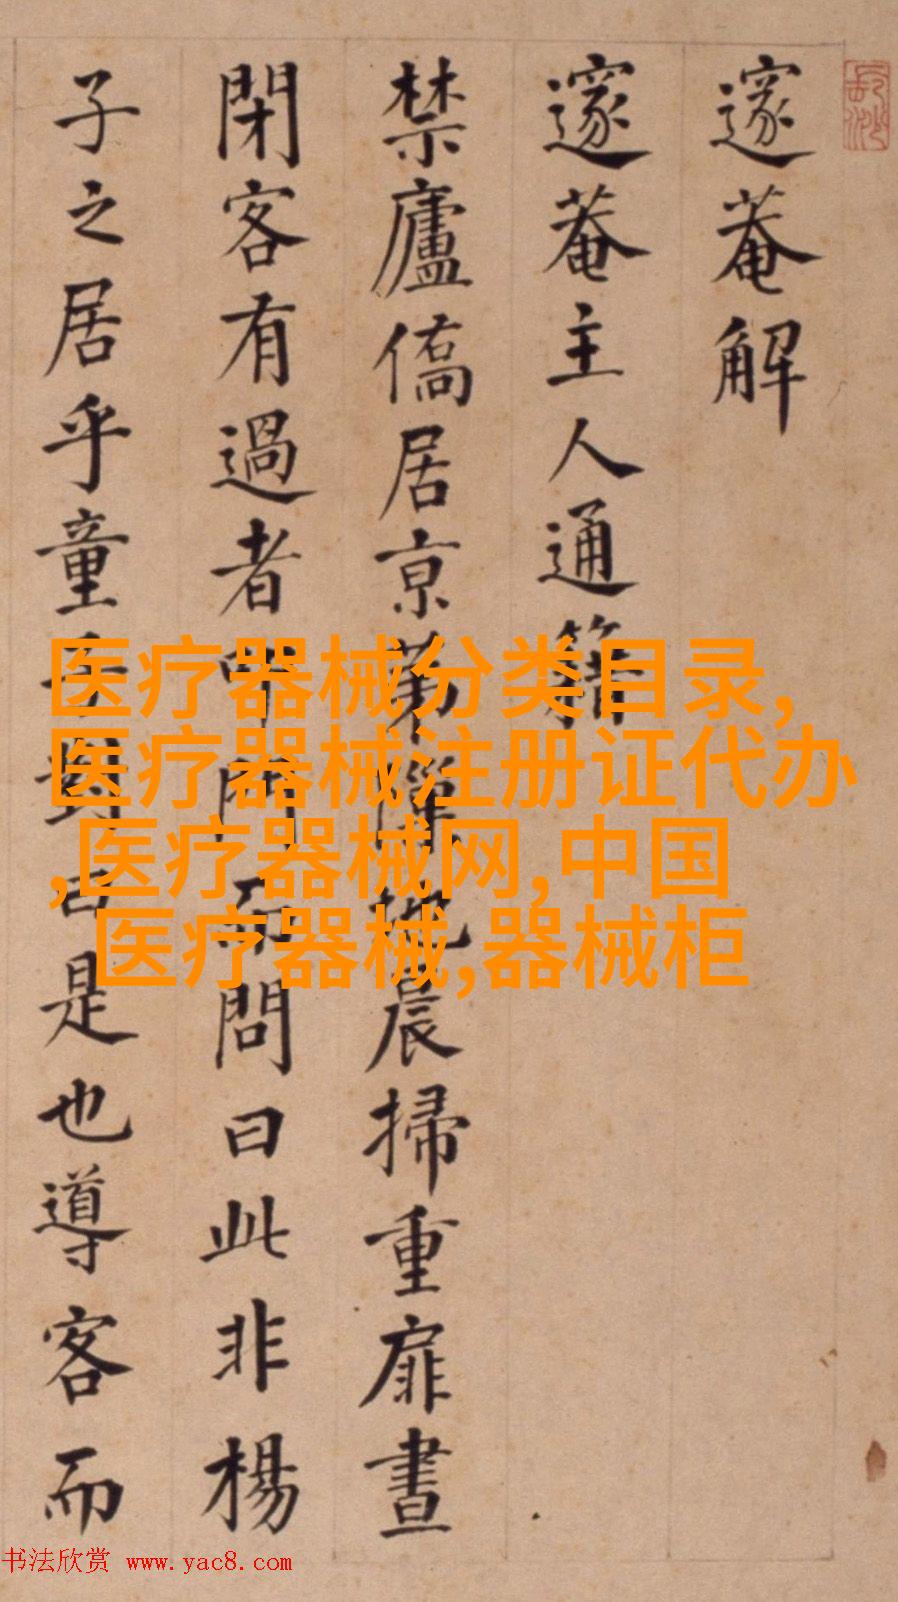 邃菴解
邃菴主人通籍
禁廬僑居京苐晨掃重扉晝
閉客有過者叩門而問曰此非楊
子之居乎童子對曰是也導客而
医疗器械分类目录,
医疗器械注册证代办
,医疗器械网,中国
医疗器械,器械柜
书法欣赏 www.yac8.com